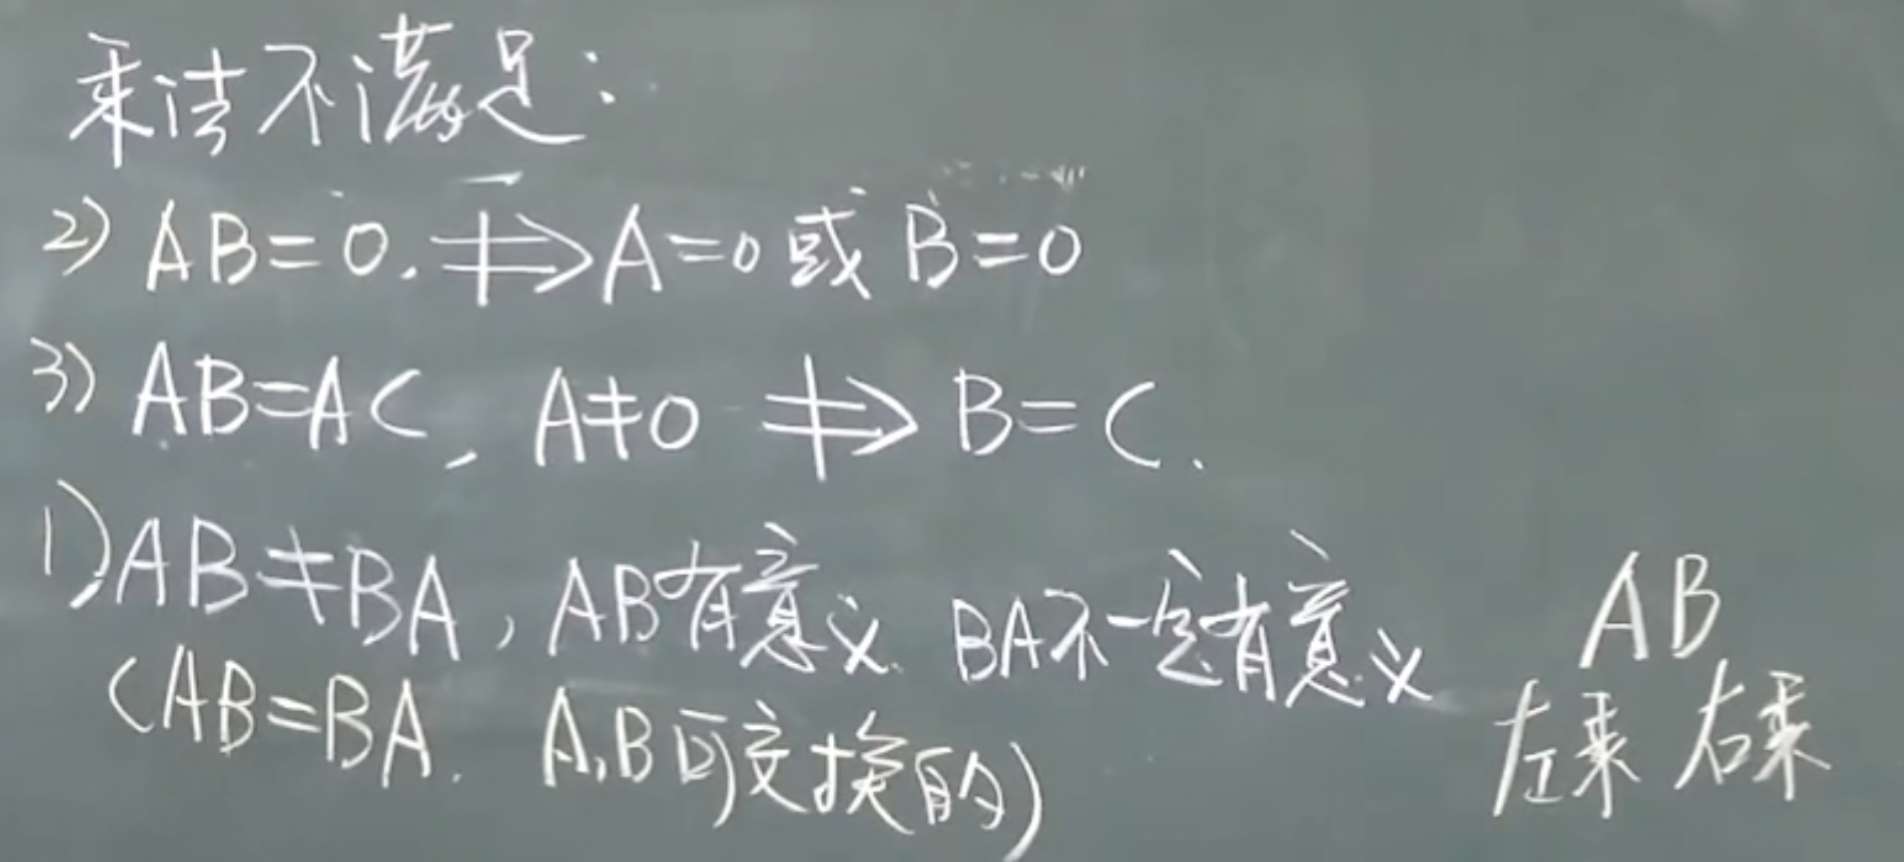 乘法不满足:
2) AB=0. ⇏ A=0 或 B=0
3) AB=AC, A≠0 ⇏ B=C.
1) AB≠BA, AB有意义 BA不一定有意义
(AB=BA. A,B可交换的)
AB
左乘 右乘